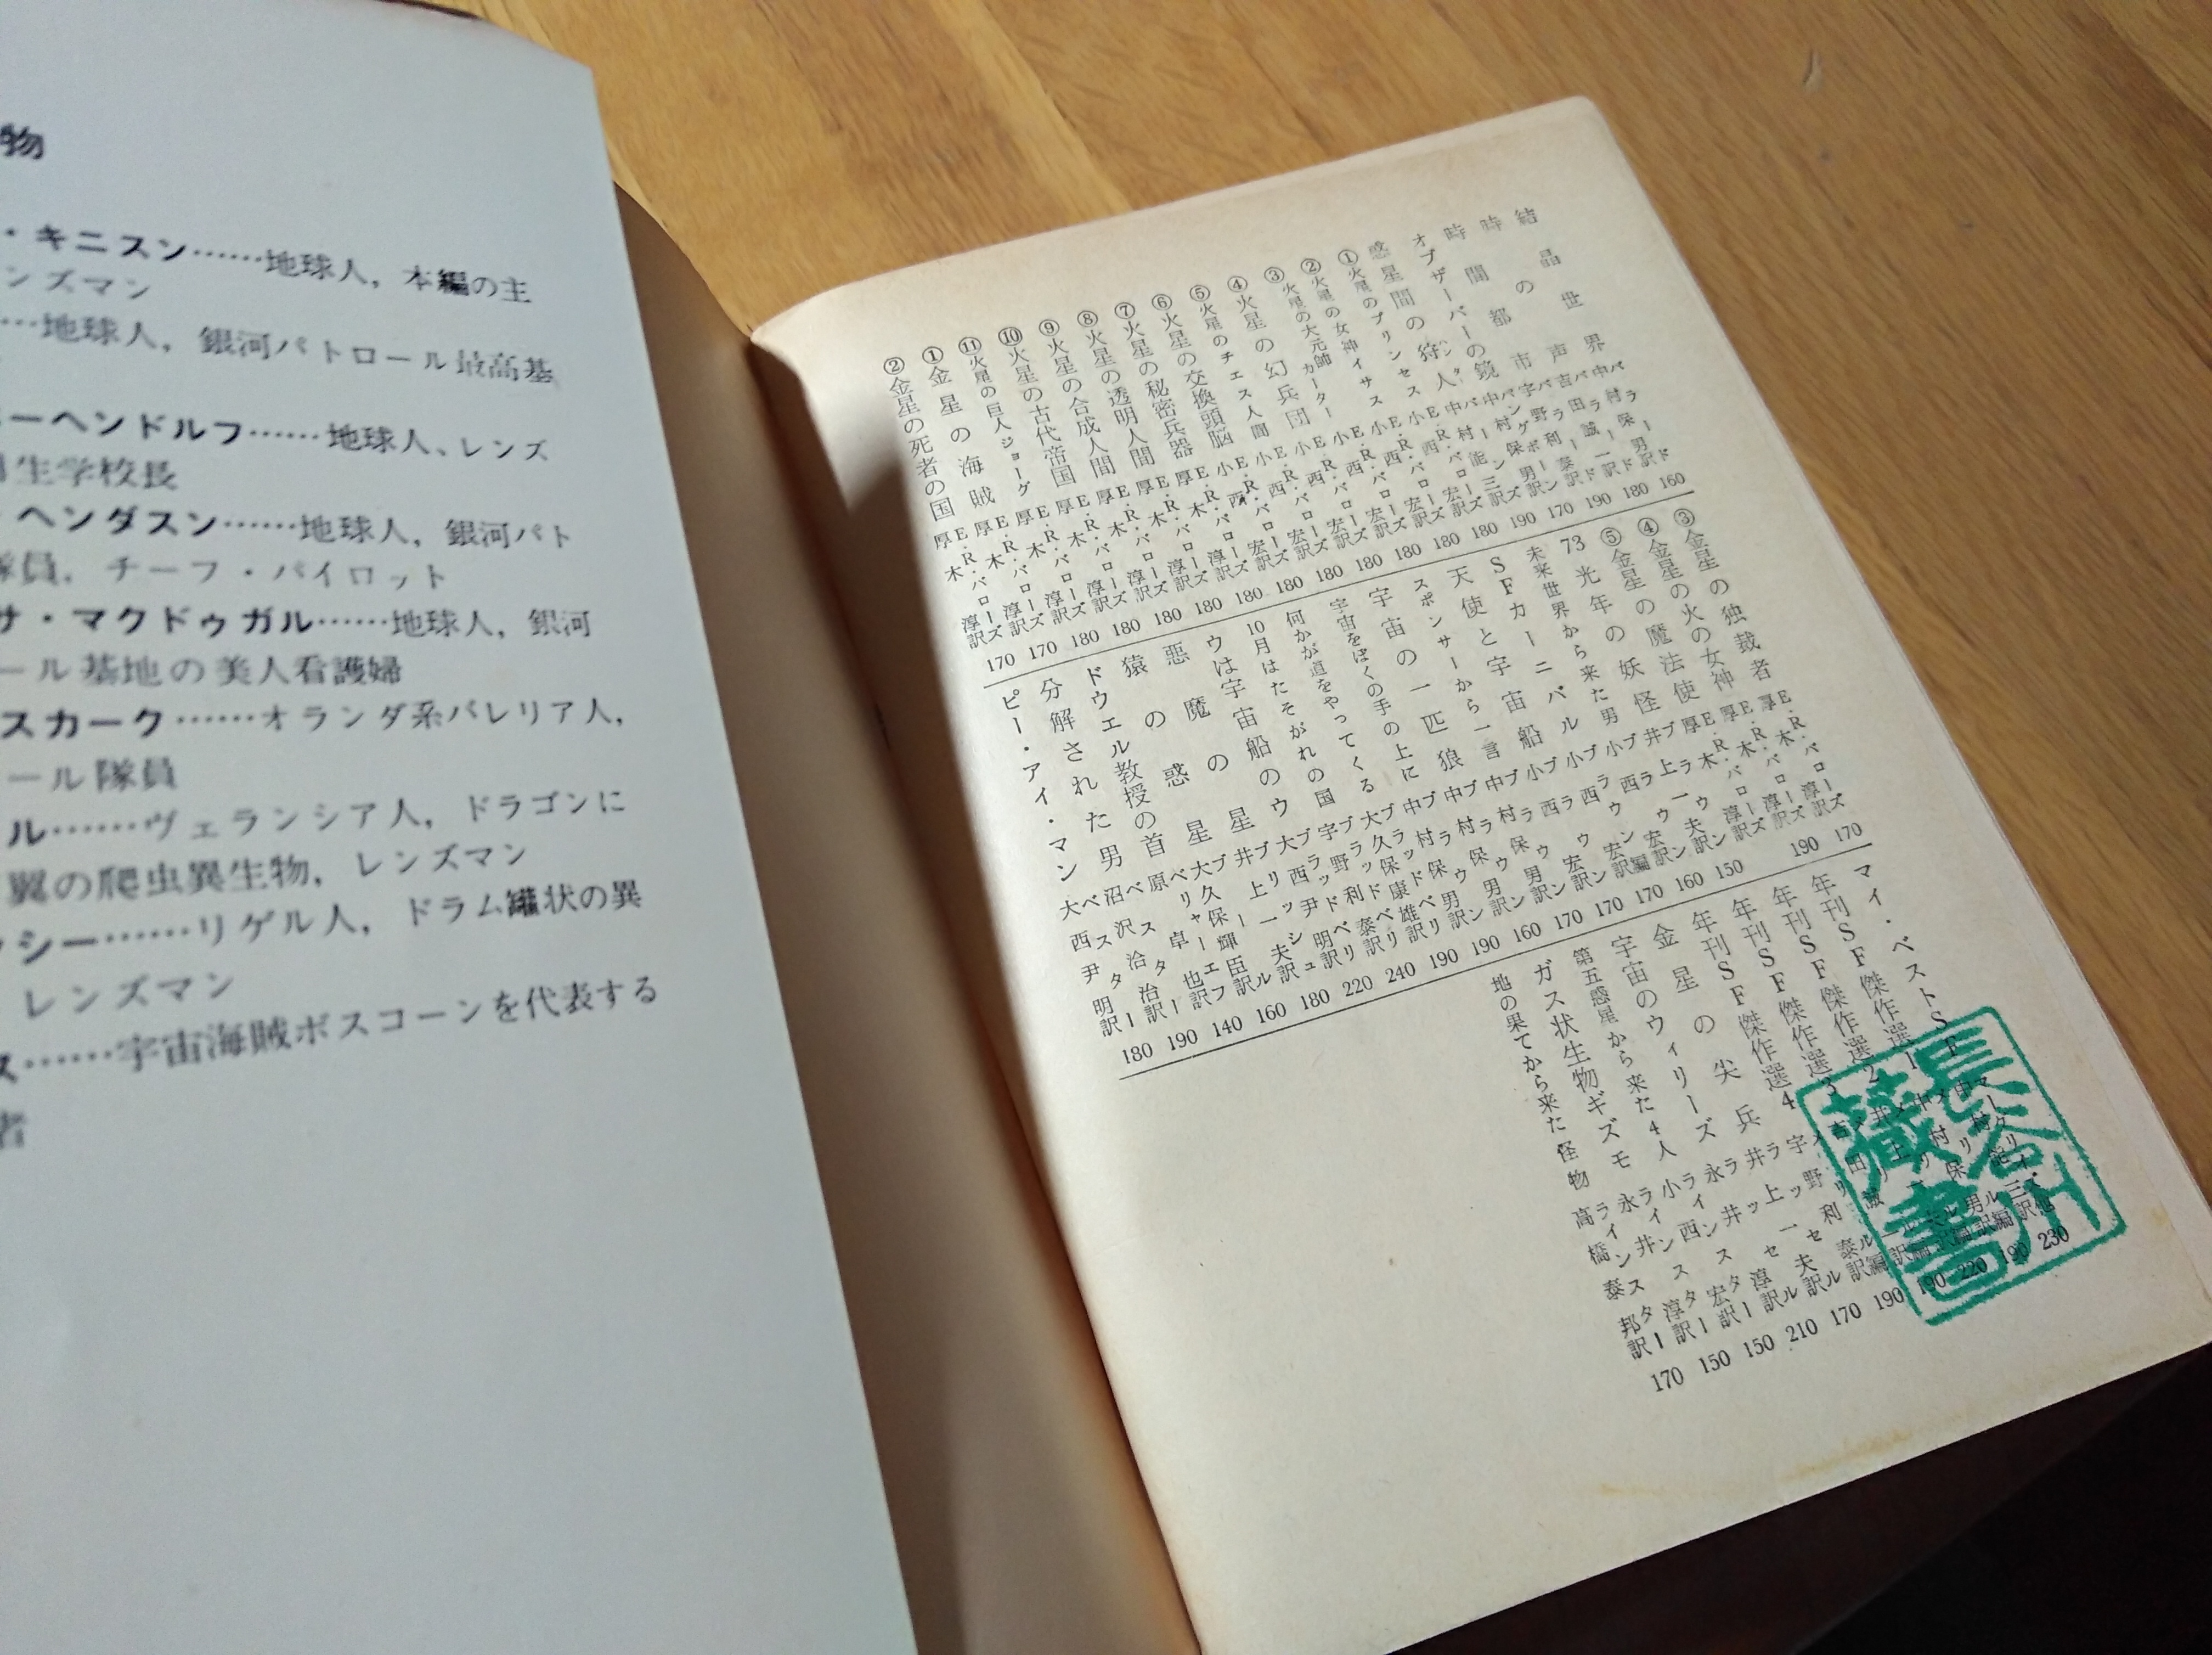 物
・キニスン……地球人，本編の主
ンズマン
…地球人，銀河パトロール最高基
ーヘンドルフ……地球人、レンズ
生学校長
ヘンダスン……地球人，銀河パト
隊員．チーフ・パイロット
サ・マクドゥガル……地球人，銀河
ール基地の美人看護婦
スカーク……オランダ系バレリア人，
ール隊員
ル……ヴェランシア人，ドラゴンに
翼の爬虫異生物，レンズマン
ッシー……リゲル人，ドラム罐状の異
レンズマン
ス……宇宙海賊ボスコーンを代表する
者
結晶世界 バラード 中村保男訳 160
時の声 バラード 吉田誠一訳 180
時間都市 バラード 宇野利泰訳 190
オブザーバーの鏡 パングボーン 中村保男訳 170
惑星間の狩人 バーンズ 中村能三訳 190
①火星のプリンセス E・R・バローズ 小西宏訳 180
②火星の女神イサス E・R・バローズ 小西宏訳 180
③火星の大元帥カーター E・R・バローズ 小西宏訳 180
④火星の幻兵団 E・R・バローズ 小西宏訳 180
⑤火星のチェス人間 E・R・バローズ 小西宏訳 180
⑥火星の交換頭脳 E・R・バローズ 厚木淳訳 180
⑦火星の秘密兵器 E・R・バローズ 厚木淳訳 180
⑧火星の透明人間 E・R・バローズ 厚木淳訳 180
⑨火星の合成人間 E・R・バローズ 厚木淳訳 180
⑩火星の古代帝国 E・R・バローズ 厚木淳訳 180
⑪火星の巨人ジョーグ E・R・バローズ 厚木淳訳 180
①金星の海賊 E・R・バローズ 厚木淳訳 170
②金星の死者の国 E・R・バローズ 厚木淳訳 170
③金星の独裁者 E・R・バローズ 厚木淳訳 170
④金星の火の女神 E・R・バローズ 厚木淳訳 190
⑤金星の魔法使 E・R・バローズ 厚木淳訳
73光年の妖怪 ブラウン 井上一夫訳 150
未来世界から来た男 ブラウン 小西宏訳 160
SFカーニバル ブラウン 小西宏訳編 170
天使と宇宙船 ブラウン 小西宏訳 170
スポンサーから一言 ブラウン 中村保男訳 170
宇宙の一匹狼 ブラウン 中村保男訳 160
宇宙をぼくの手の上に ブラウン 中村保男訳 190
何かが道をやってくる ブラッドベリ 大久保康雄訳 190
10月はたそがれの国 ブラッドベリ 宇野利泰訳 240
ウは宇宙船のウ ブラッドベリ 大西尹明訳 220
悪魔の星 ブリッシュ 井上一夫訳 180
猿の惑星 ブール 大久保輝臣訳 160
ドウエル教授の首 ベリャーエフ 原卓也訳 140
分解された男 ベスター 沼沢洽治訳 190
ピー・アイ・マン ベスター 大西尹明訳 180
マイ・ベストSF マーグリイズ他 中村能三訳 230
年刊SF傑作選1 メリル編 中村保男訳 190
年刊SF傑作選2 メリル編 井上一夫訳 220
年刊SF傑作選3 メリル編 吉田誠一訳 190
年刊SF傑作選4 メリル編 宇野利泰訳 190
金星の尖兵 ラッセル 井上一夫訳 170
宇宙のウィリーズ ラッセル 永井淳訳 210
第五惑星から来た4人 ラインスター 小西宏訳 150
ガス状生物ギズモ ラインスター 永井淳訳 150
地の果てから来た怪物 ラインスター 高橋泰邦訳 170
長谷川
蔵書